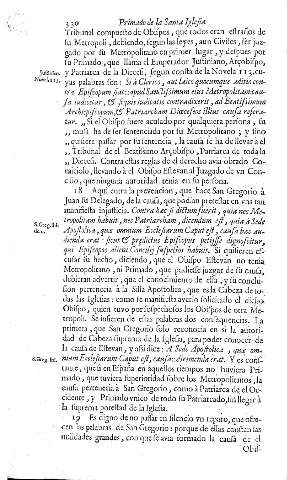 330 Primado de la Santa Iglesia
Tribunal compuesto de Obispos, que todos eran estraños de
su Metropoli, debiendo, segun las leyes, aun Civiles, ser juz-
gado por su Metropolitano en primer lugar, y despues por
su Primado, que llama el Emperador Justiniano, Arçobispo,
Justinian. y Patriarca de la Diecesi, segun consta de la Novela 113. cu-
yas palabras son: Si à Clerico, aut Laico quocumque aditio con-
tra Episcopum
sa iudicetur, & si quis iudicatis contradixerit, ad Beatissimum
Archiepiscopum, & Patriarcham Diœcesis illius causa refera-
tur. ,, Si el Obispo fuere acusado por qualquiera persona, su
,, causa ha de ser sentenciada por su Metropolitano; y sino
,, quisiere passar por su sentencia, la causa se ha de llevar al
,, Tribunal de el Beatissimo Arçobispo, Patriarca de toda la
,, Diecesi. Contra estas reglas de el derecho avia obrado Co-
miciolo, llevando à el Obispo Estevan al Juzgado de vn Con-
cilio, que ninguna autoridad tenia en su persona.
18 Aqui entra la pretension, que hace San Gregorio à
Juan su Delegado, de la causa, que podian pretestar en vna tan
manifiesta injusticia. Contra hæc si dictum fuerit, quia nec Me-
S. Greg. tropolitam habuit, nec Patriarcham, dicendum est, quia à Sede
Apostolica, quæ omnium Ecclesiarum Caput est, causa hæc au-
dienda erat: sicut & prædictus Episcopus petiisse dignoscitur,
qui Episcopos alieni Concilij suspectos habuit. Si quisieren es-
cusar su hecho, diciendo, que el Obispo Estevan no tenia
Metropolitano, ni Primado, que pudiesse juzgar de su causa,
debieran advertir, que el conocimiento de ella, y su conclu-
sion pertenecia à la Silla Apostolica, que es la Cabeça de to-
das las Iglesias: como se manifiesta averlo solicitado el dicho
Obispo, quien tuvo por sospechosos los Obispos de otra Me-
tropoli. Se infieren de estas palabras dos consequencias. La
primera, que San Gregorio solo reconocia en si la autori-
dad de Cabeça suprema de la Iglesia, para poder conocer de
la causa de Estevan, y assi dice: A Sede Apostolica, quæ om-
S. Greg. nium Ecclesiarum Caput est, causa dirimenda erat. Y es cons-
tante, que si en España en aquellos tiempos no huviera Pri-
mado, que tuviera superioridad sobre los Metropolitanos, la
causa pertenecia à San Gregorio, como à Patriarca de el Oc-
cidente, y Primado vnico de todo su Patriarcado, sin llegar à
la suprema potestad de la Iglesia.
19 Es digno de no passar en silencio vn reparo, que ofre-
cen las palabras de San Gregorio: porque de ellas constan las
nulidades grandes, con que se avia formado la causa de el
Obis-